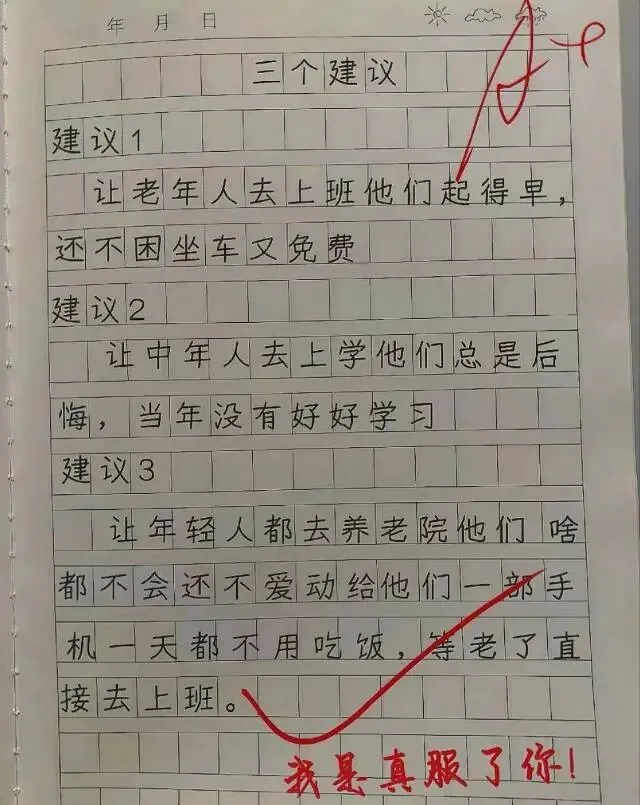 年 月 日
A+
三个建议
建议1
让老年人去上班他们起得早，
还不困坐车又免费
建议2
让中年人去上学他们总是后
悔，当年没有好好学习
建议3
让年轻人都去养老院他们啥
都不会还不爱动给他们一部手
机一天都不用吃饭，等老了直
接去上班。
我是真服了你！